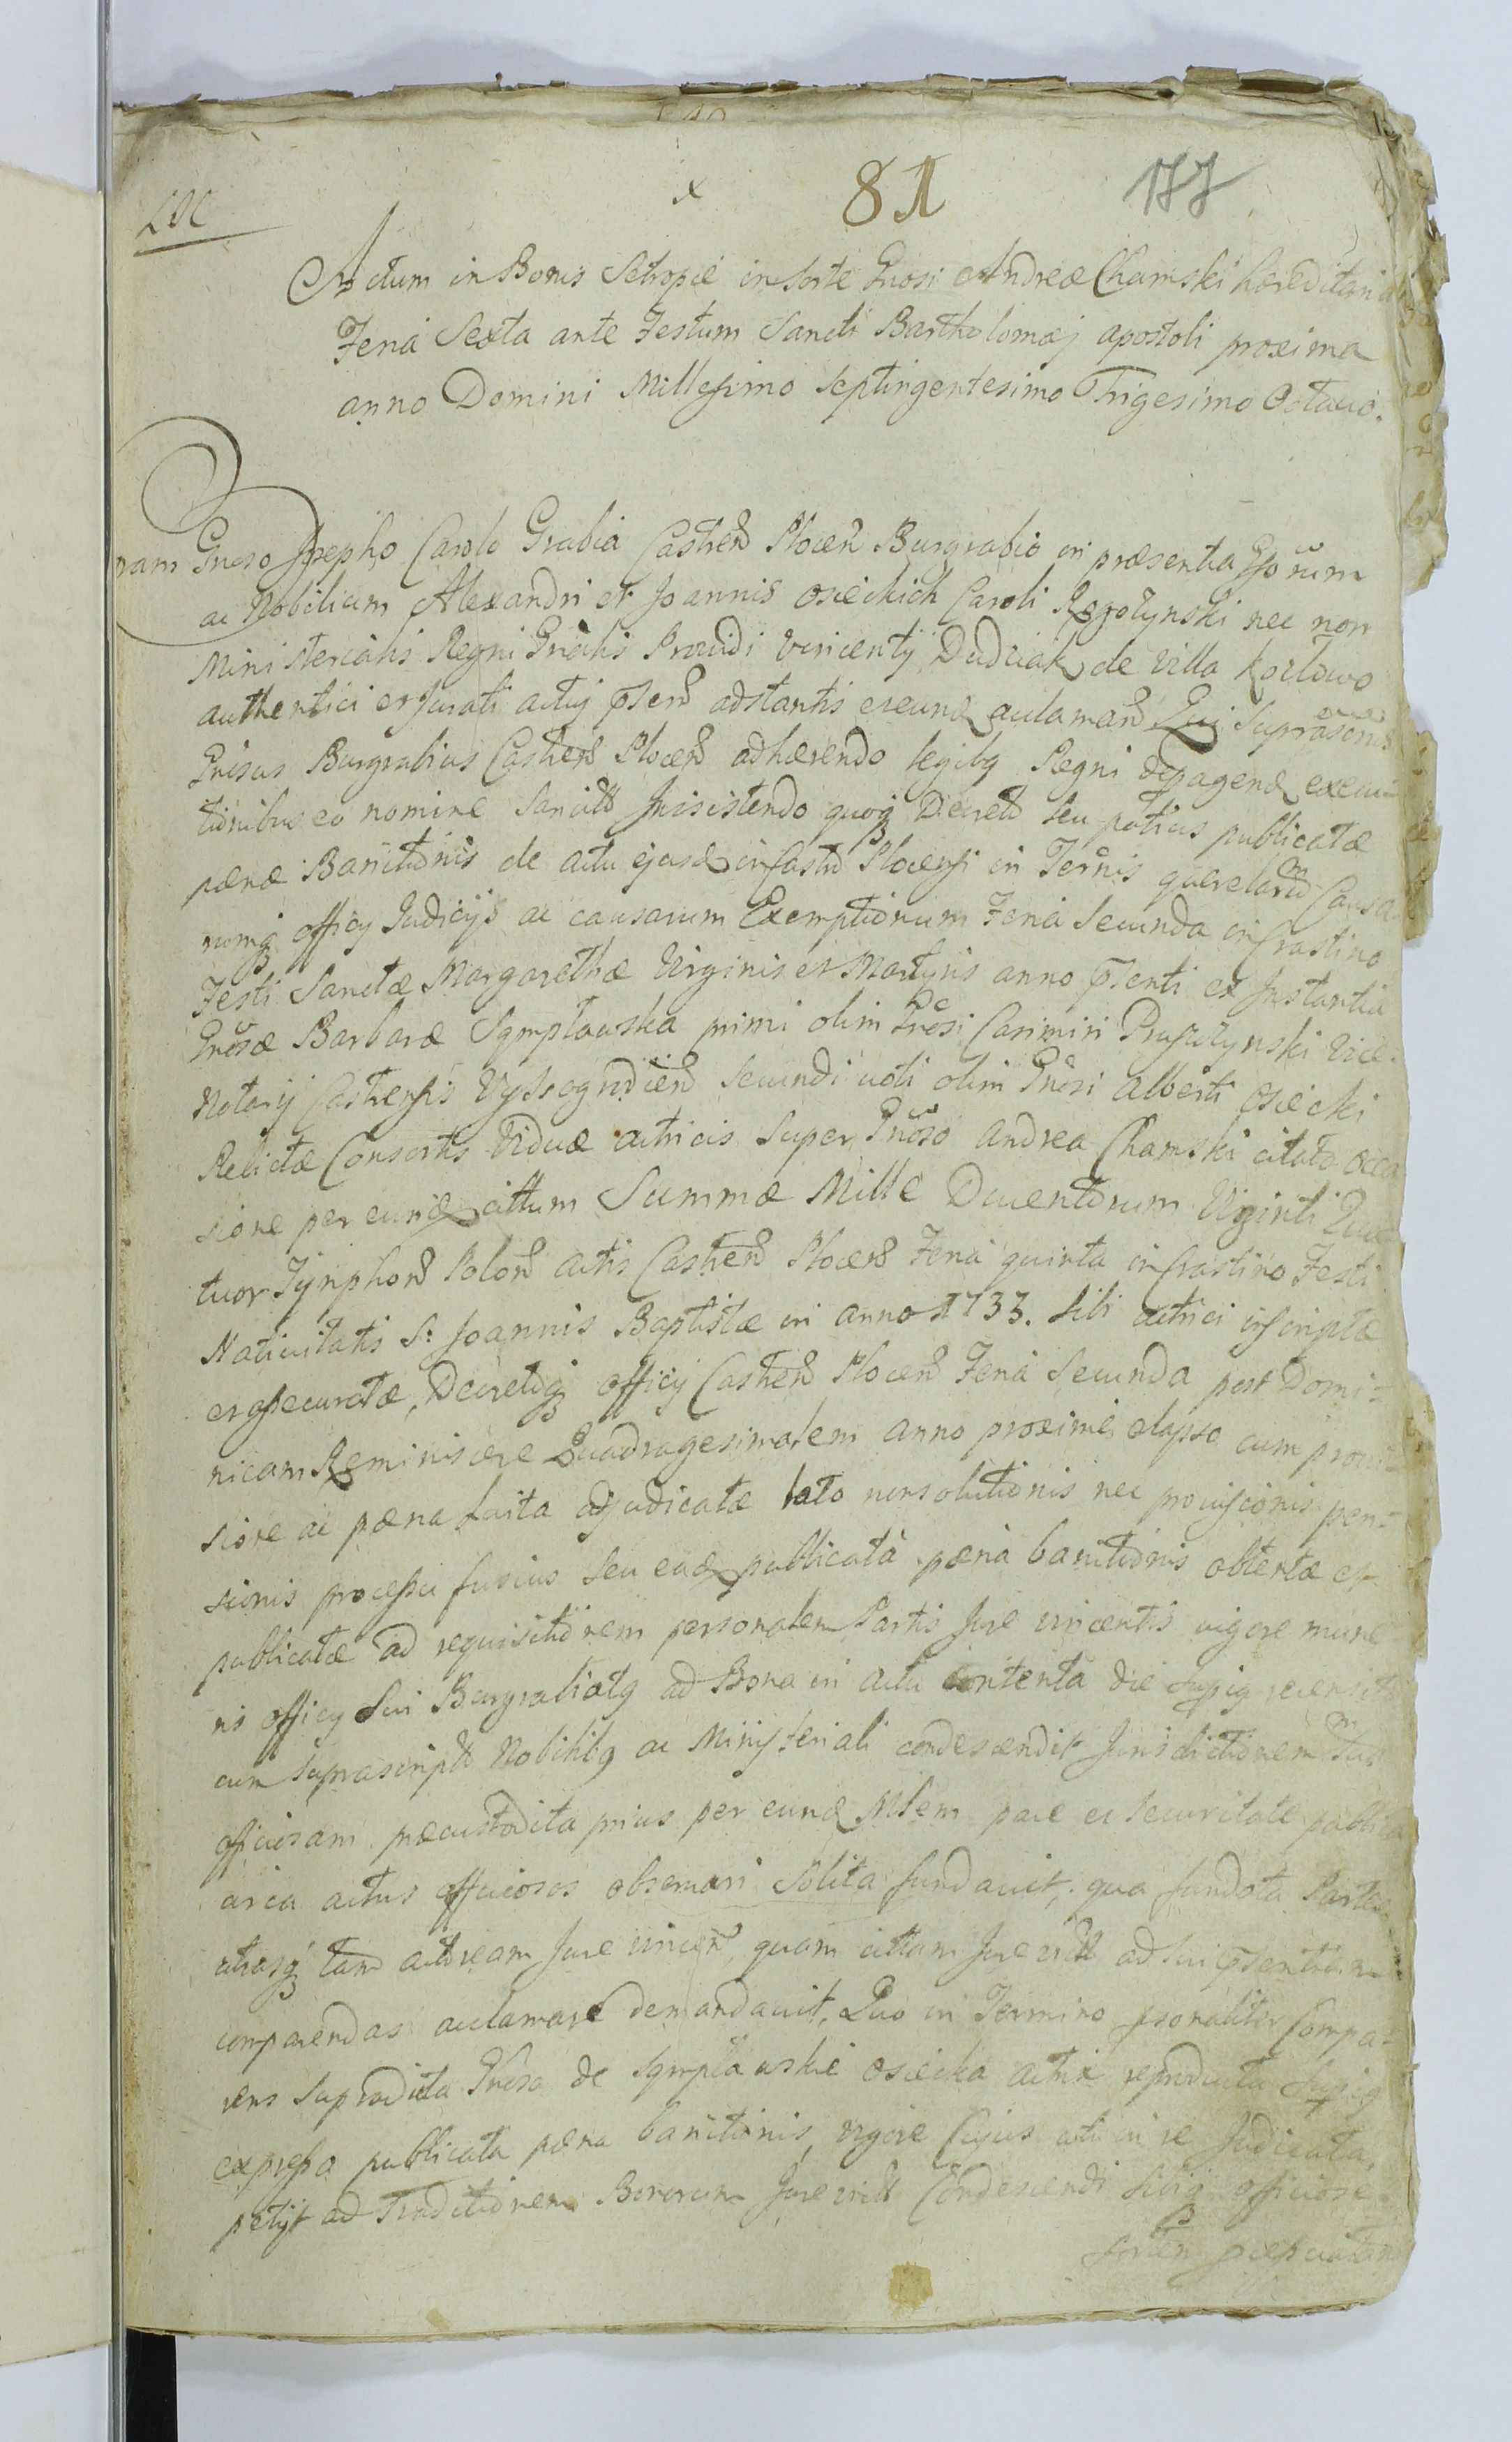 x 81 177
LSC
Actum in Bonis Setropie in sorte Gnosi Andreæ Chamski hæreditaria
Feria Sexta ante Festum Sancti Bartholomæj apostoli proxima
anno Domini Millesimo Septingentesimo Trigesimo Octavo.
ram Gnoso Josepho Carolo Grabia Castren Plocen Burgrabio in præsentia Gsorum
ac Nobilium Alexandri et Joannis Osieckich Caroli Rogolynski nec non
Ministerialis Regni Gnalis Providi Vincentij Dudziak de villa Kozlowo
authentici et jurati actuj pnten adstantis eteunq aclamand Qui Suprascrius
Gnosus Burgrabius Castren Plocen adhærendo legibq Regni de pagend execu-
tionibus eo nomine Sancitis Insistendo quoq Decreto seu potius publicatæ
pænæ Banitionis de actu ejusd in Castro Plocensi in Terminis querelarum Causa-
rumq officij Judicijs ac causarum Exemptionum Feria Secunda in Crastino
Festi Sanctæ Margarethæ Virginis et Martyris anno pnti ex Instantia
Gnosæ Barbaræ Sgmplawska primi olim Gnosi Casimiri Pruszynski Vice-
Notarij Castrensis Vyssogrodien Secundi voti olim Gnosi Alberti Osiecki
Relictæ Consortis Viduæ actricis Super Gnoso Andrea Chamski citato occa
sione per eundq cittum Summæ Mille Ducentorum Viginti Qua
tuor Tynphon Polon Actis Castren Plocen Feria quinta in Crastino Festi
Nativitatis S: Joannis Baptistæ in anno 1733. sibi actrici inscriptæ
et assecuratæ, Decretoq officij Castren Plocen Feria Secunda post Domi-
nicam Reminiscere Quadragesimalem anno proximè elapso cum provi-
sione ac pæna luita adjudicatæ lato nonsolutionis nec provisionis pen-
sionis processu fusius seu eadq publicatà pæna banitionis obtentæ et
publicatæ ad requisitionem personalem Partis Jure vincentis vigore mune
ris officij Sui Burgrabiatq ad Bona in actu contenta die supiq recensito
cum suprascriptis Nobilibq ac Ministeriali condescendit Jurisdictionem Suam
officiosam præcustodita prius per eundq Mlem pace et securitate publica
circa actus officiosos observari solita fundavit, qua fundata Partes
utrasq tam actoream Jure vincen, quam cittam Jurevict ad sui psentiam
comparendas aclamare demandavit, Quo in Termino psonaliter Compa-
rens supradicta Gnosa de Sgmplawskie Osiecka actrix reproducta supiq
expressa publicata pæna banitionis, vigore Cujus uti in re Judicata,
petijt ad Traditionem Bonorum Jurevict Condescendi sibiq officiose